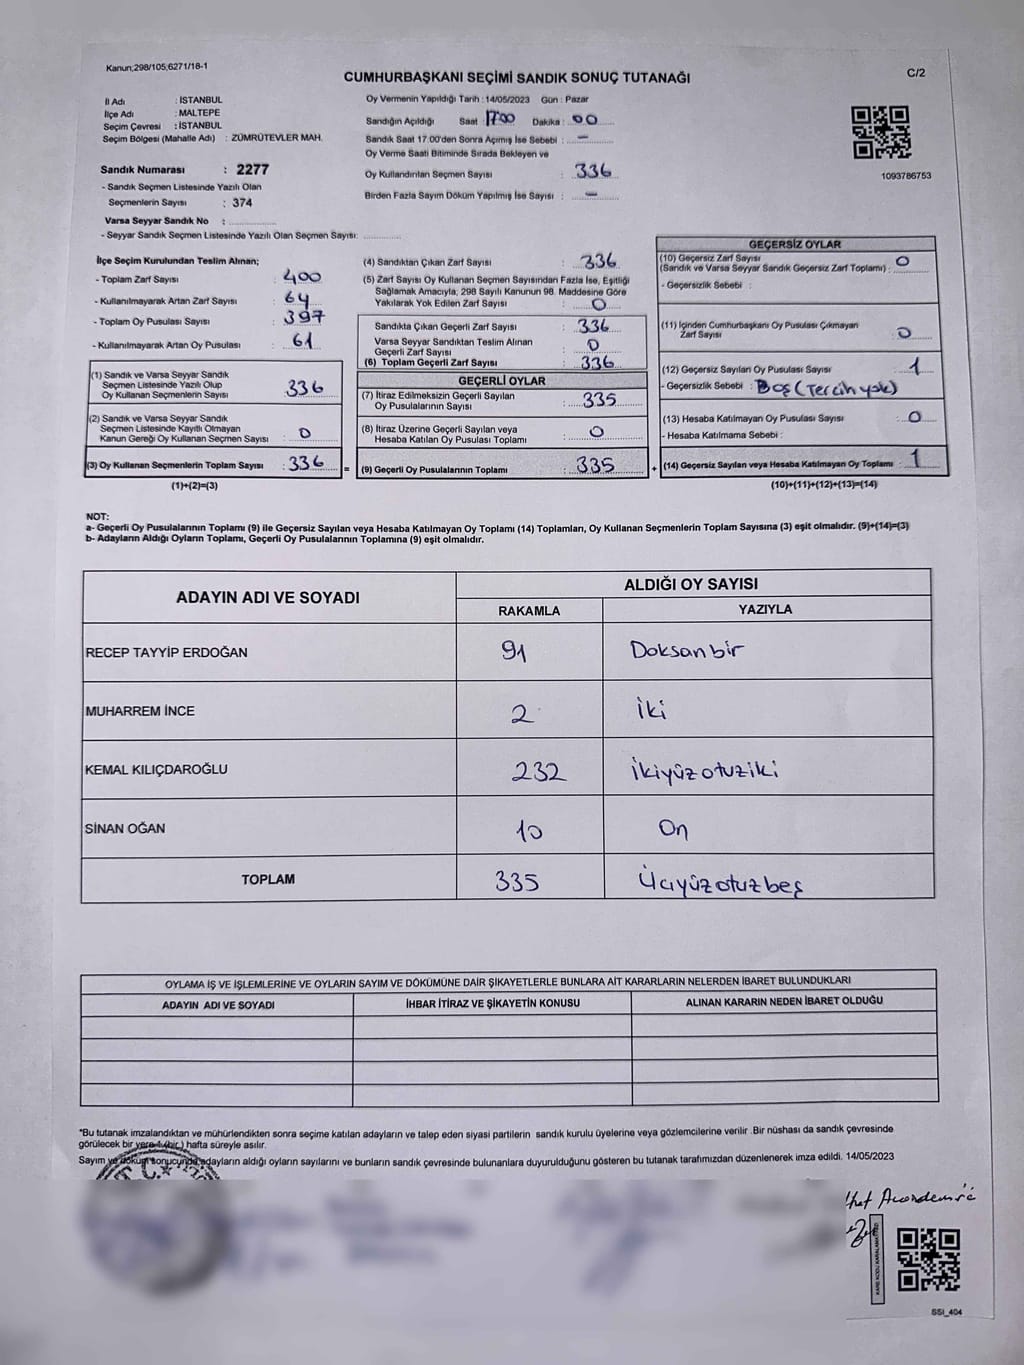 Kanun;298/105;6271/18-1
C/2
CUMHURBAŞKANI SEÇİMİ SANDIK SONUÇ TUTANAĞI
İl Adı : İSTANBUL
İlçe Adı : MALTEPE
Seçim Çevresi : İSTANBUL
Seçim Bölgesi (Mahalle Adı) : ZÜMRÜTEVLER MAH.
Sandık Numarası : 2277
- Sandık Seçmen Listesinde Yazılı Olan
Seçmenlerin Sayısı : 374
Varsa Seyyar Sandık No :
- Seyyar Sandık Seçmen Listesinde Yazılı Olan Seçmen Sayısı:
Oy Vermenin Yapıldığı Tarih : 14/05/2023 Gün : Pazar
Sandığın Açıldığı Saat : 17:00 Dakika : 00
Sandık Saat 17:00'den Sonra Açımış İse Sebebi : -
Oy Verme Saati Bitiminde Sırada Bekleyen ve
Oy Kullandırılan Seçmen Sayısı : 336
Birden Fazla Sayım Döküm Yapılmış İse Sayısı : -
1093786753
İlçe Seçim Kurulundan Teslim Alınan;
- Toplam Zarf Sayısı : 400
- Kullanılmayarak Artan Zarf Sayısı : 64
- Toplam Oy Pusulası Sayısı : 397
- Kullanılmayarak Artan Oy Pusulası : 61
(1) Sandık ve Varsa Seyyar Sandık
Seçmen Listesinde Yazılı Olup
Oy Kullanan Seçmenlerin Sayısı : 336
(2) Sandık ve Varsa Seyyar Sandık
Seçmen Listesinde Kayıtlı Olmayan
Kanun Gereği Oy Kullanan Seçmen Sayısı : 0
(3) Oy Kullanan Seçmenlerin Toplam Sayısı : 336 =
(1)+(2)=(3)
(4) Sandıktan Çıkan Zarf Sayısı : 336
(5) Zarf Sayısı Oy Kullanan Seçmen Sayısından Fazla İse, Eşitliği
Sağlamak Amacıyla; 298 Sayılı Kanunun 98. Maddesine Göre
Yakılarak Yok Edilen Zarf Sayısı : 0
Sandıkta Çıkan Geçerli Zarf Sayısı : 336
Varsa Seyyar Sandıktan Teslim Alınan
Geçerli Zarf Sayısı : 0
(6) Toplam Geçerli Zarf Sayısı : 336
GEÇERLİ OYLAR
(7) İtiraz Edilmeksizin Geçerli Sayılan
Oy Pusulalarının Sayısı : 335
(8) İtiraz Üzerine Geçerli Sayılan veya
Hesaba Katılan Oy Pusulası Toplamı : 0
(9) Geçerli Oy Pusulalarının Toplamı : 335 +
GEÇERSİZ OYLAR
(10) Geçersiz Zarf Sayısı
(Sandık ve Varsa Seyyar Sandık Geçersiz Zarf Toplamı) : 0
- Geçersizlik Sebebi :
(11) İçinden Cumhurbaşkanı Oy Pusulası Çıkmayan
Zarf Sayısı : 0
(12) Geçersiz Sayılan Oy Pusulası Sayısı : 1
- Geçersizlik Sebebi : Boş (Tercih yok)
(13) Hesaba Katılmayan Oy Pusulası Sayısı : 0
- Hesaba Katılmama Sebebi :
(14) Geçersiz Sayılan veya Hesaba Katılmayan Oy Toplamı : 1
(10)+(11)+(12)+(13)=(14)
NOT:
a- Geçerli Oy Pusulalarının Toplamı (9) ile Geçersiz Sayılan veya Hesaba Katılmayan Oy Toplamı (14) Toplamları, Oy Kullanan Seçmenlerin Toplam Sayısına (3) eşit olmalıdır. (9)+(14)=(3)
b- Adayların Aldığı Oyların Toplamı, Geçerli Oy Pusulalarının Toplamına (9) eşit olmalıdır.
ADAYIN ADI VE SOYADI
ALDIĞI OY SAYISI
RAKAMLA YAZIYLA
RECEP TAYYİP ERDOĞAN 91 Doksanbir
MUHARREM İNCE 2 İki
KEMAL KILIÇDAROĞLU 232 İkiyüzotuziki
SİNAN OĞAN 10 On
TOPLAM 335 Üçyüzotuzbeş
OYLAMA İŞ VE İŞLEMLERİNE VE OYLARIN SAYIM VE DÖKÜMÜNE DAİR ŞİKAYETLERLE BUNLARA AİT KARARLARIN NELERDEN İBARET BULUNDUKLARI
ADAYIN ADI VE SOYADI İHBAR İTİRAZ VE ŞİKAYETİN KONUSU ALINAN KARARIN NEDEN İBARET OLDUĞU
*Bu tutanak imzalandıktan ve mühürlendikten sonra seçime katılan adayların ve talep eden siyasi partilerin sandık kurulu üyelerine veya gözlemcilerine verilir .Bir nüshası da sandık çevresinde
görülecek bir yere 1 (bir ) hafta süreyle asılır.
Sayım ve döküm sonucunda adayların aldığı oyların sayılarını ve bunların sandık çevresinde bulunanlara duyurulduğunu gösteren bu tutanak tarafımızdan düzenlenerek imza edildi. 14/05/2023
T.C.
SSI_404